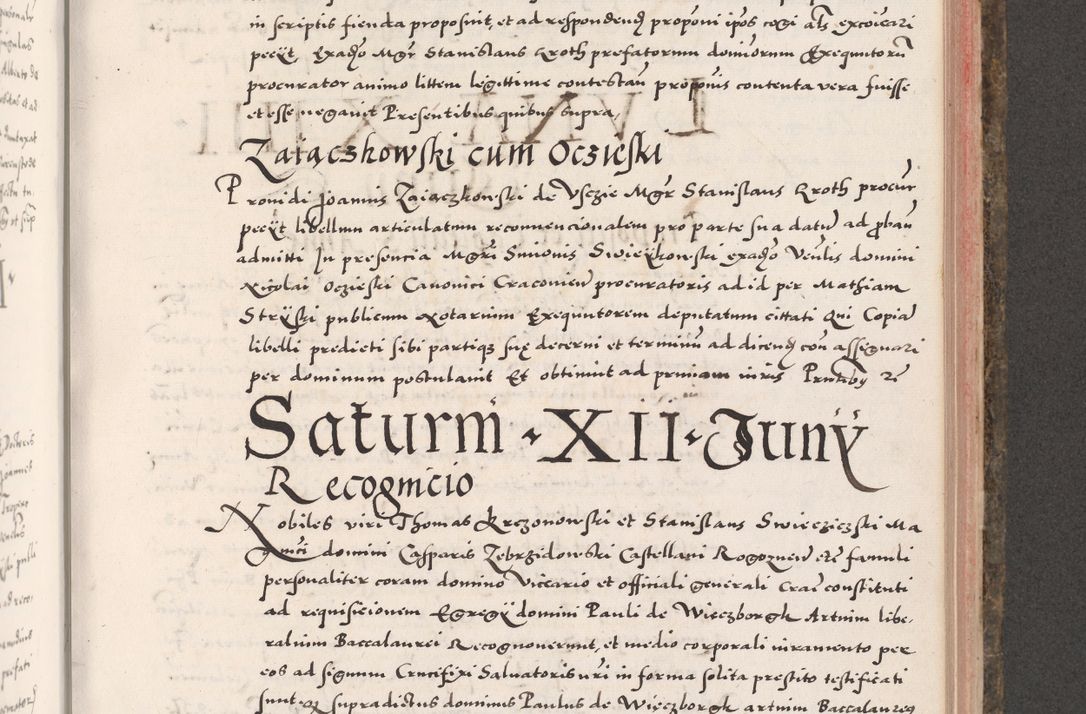 in scriptis fienda proposuit, et ad respondenđ proponi ipōs cogi als excoīcari
pecÿt, Exađo Mgr Stanislaus Kroth prefatorum dominorum Exequutorū
procurator animo littem legittime contestaū proponis contenta vera fuisse
et esse negauit Presentibus quibus supra,
Zaiączkowski cum Oczieski
Prouidi Joannis Zaiaczkowski de Vsczie Mgr Stanislaus Kroth procur
pecÿt libellum articulatum reconuencionalem pro parte sua datū ad ꝓbaū
admitti Jn presencia Mgri Simonis Swieÿkowski exađo Venlis domini
Nicolai Oczieski Canonici Cracovien procuratoris ad id per Mathiam
Strÿski publicum Notarium Exequutorem deputatum cittati Qui Copiā
libelli predicti sibi partiqꝫ suę decerni et terminū ad dicenđ con assignari
per dominum postulauit Et obtinuit ad primam iuris Prntibꝫ re
Saturni · XII · Junÿ
Recognicio
Nobiles viri Thomas Krczonowski et Stanislaus Swiecziczski Ma
gnici domini Casparis Zebrzidowski Castellani Rogoznen etc famuli
personaliter coram domino Vicecario et officiali generali Crac constituti
ad requisicionem Egregÿ domini Pauli de Wieczborgk Artium libe-
ralium Baccalaurei Recognouerunt, et medio corporali iuramento per
eos ad signum Crucifixi Saluatoris uri in forma solita prestito testificati
sunt. Qꝫ supradictus dominus Paulus de Więczborgk artium Baccalaureus